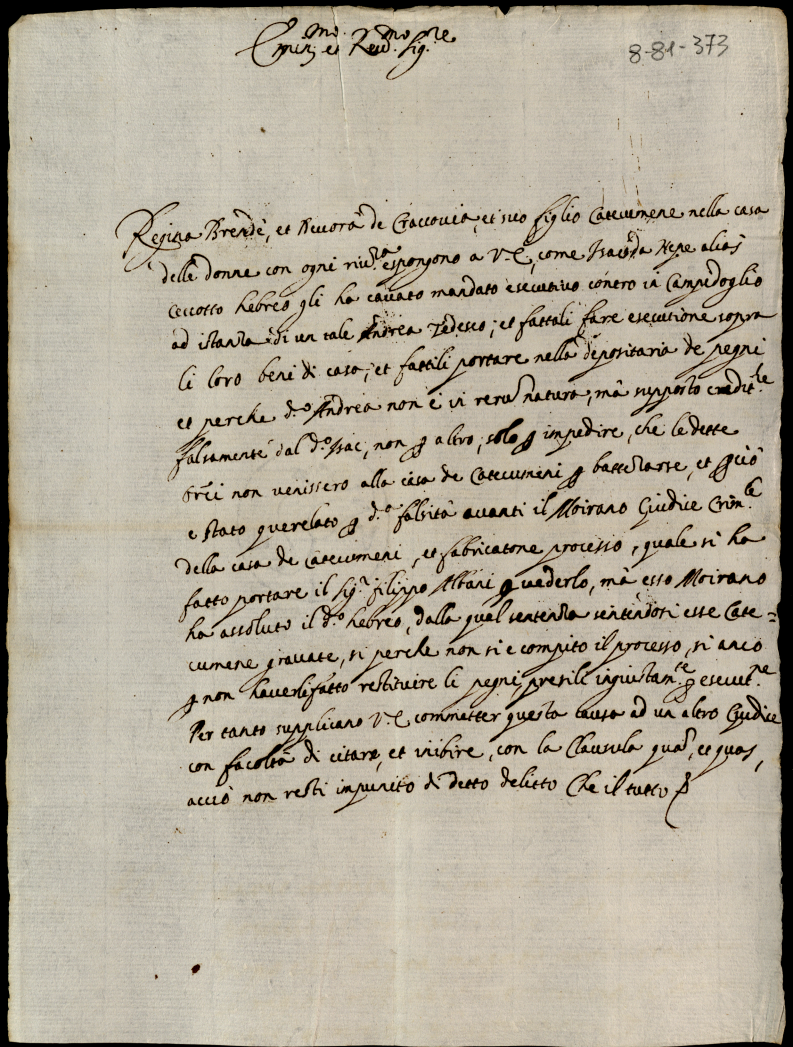 Emin.mo et Reud.mo Sig.re
8-81-373
Regina Brendè, et Deuorà de Craccouia, et suo figlio Catecumene nella casa
delle donne con ogni riu.za espongono a V.E. come Isacc da Nepe alias
Ceccotto hebreo gli ha cauato mandato esecutiuo contro in Campidoglio
ad istanza di un tale Andrea Tedesco, et fattali fare esecutione sopra
li loro beni di casa, et fattili portare nella depositaria de pegni
et perche d.o Andrea non è in reru natura, mà supposto credit.re
falsamente dal d.o Isac, non p altro, solo p impedire, che le dette
non venissero alla casa de Catecumeni p battezarse, et p ciò
è stato querelato p d.a falsità auanti il Moirano Giudice Crim.le
della casa de Catecumeni, et fabricatone processo, quale si ha
fatto portare il Sig.r filippo Albani p uederlo, mà esso Moirano
ha assoluto il d.o hebreo, dalla qual sentenza sentendosi esse Cate=
cumene grauate, si perche non si è compito il processo, si anco
p non hauerli fatto restituire li pegni, presili ingiustam.te p esecut.ne
Per tanto supplicano V.E. commetter questa causa ad un altro Giudice
con facoltà di citare, et inibire, con la Clausula quas, et quos,
acciò non resti impunito di detto delitto Che il tutto